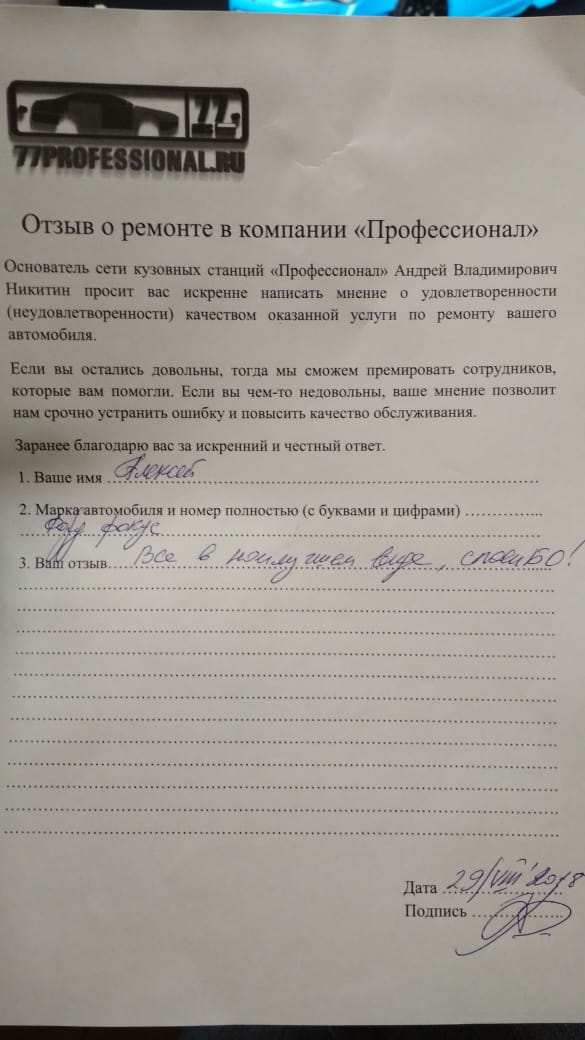 77
77PROFESSIONAL.RU
Отзыв о ремонте в компании «Профессионал»
Основатель сети кузовных станций «Профессионал» Андрей Владимирович
Никитин просит вас искренне написать мнение о удовлетворенности
(неудовлетворенности) качеством оказанной услуги по ремонту вашего
автомобиля.
Если вы остались довольны, тогда мы сможем премировать сотрудников,
которые вам помогли. Если вы чем-то недовольны, ваше мнение позволит
нам срочно устранить ошибку и повысить качество обслуживания.
Заранее благодарю вас за искренний и честный ответ.
1. Ваше имя Алексей
2. Марка автомобиля и номер полностью (с буквами и цифрами)
Форд фокус
3. Ваш отзыв. Все в наилучшем виде, спасиБО!
Дата 29/VIII 2018
Подпись